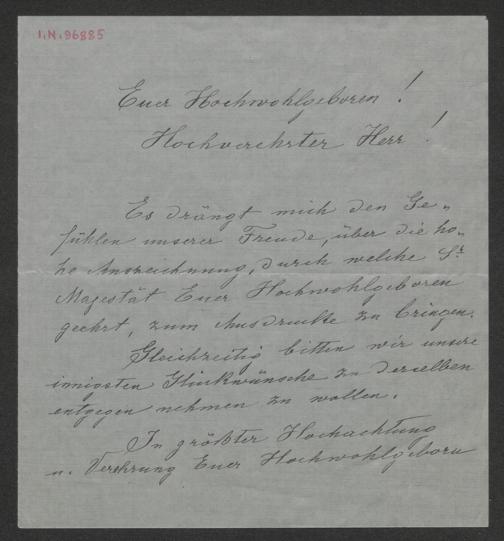 I.N. 96885
Euer Hochwohlgeboren!
Hochverehrter Herr!
Es drängt mich den Ge„
fühlen unserer Freude, über die ho„
he Auszeichnung, durch welche Sr
Majestät Euer Hochwohlgeboren
geehrt, zum Ausdrucke zu bringen.
Gleichzeitig bitten wir unsere
innigsten Glückwünsche zu derselben
entgegen nehmen zu wollen.
In größter Hochachtung
u. Verehrung Euer Hochwohlgeborn